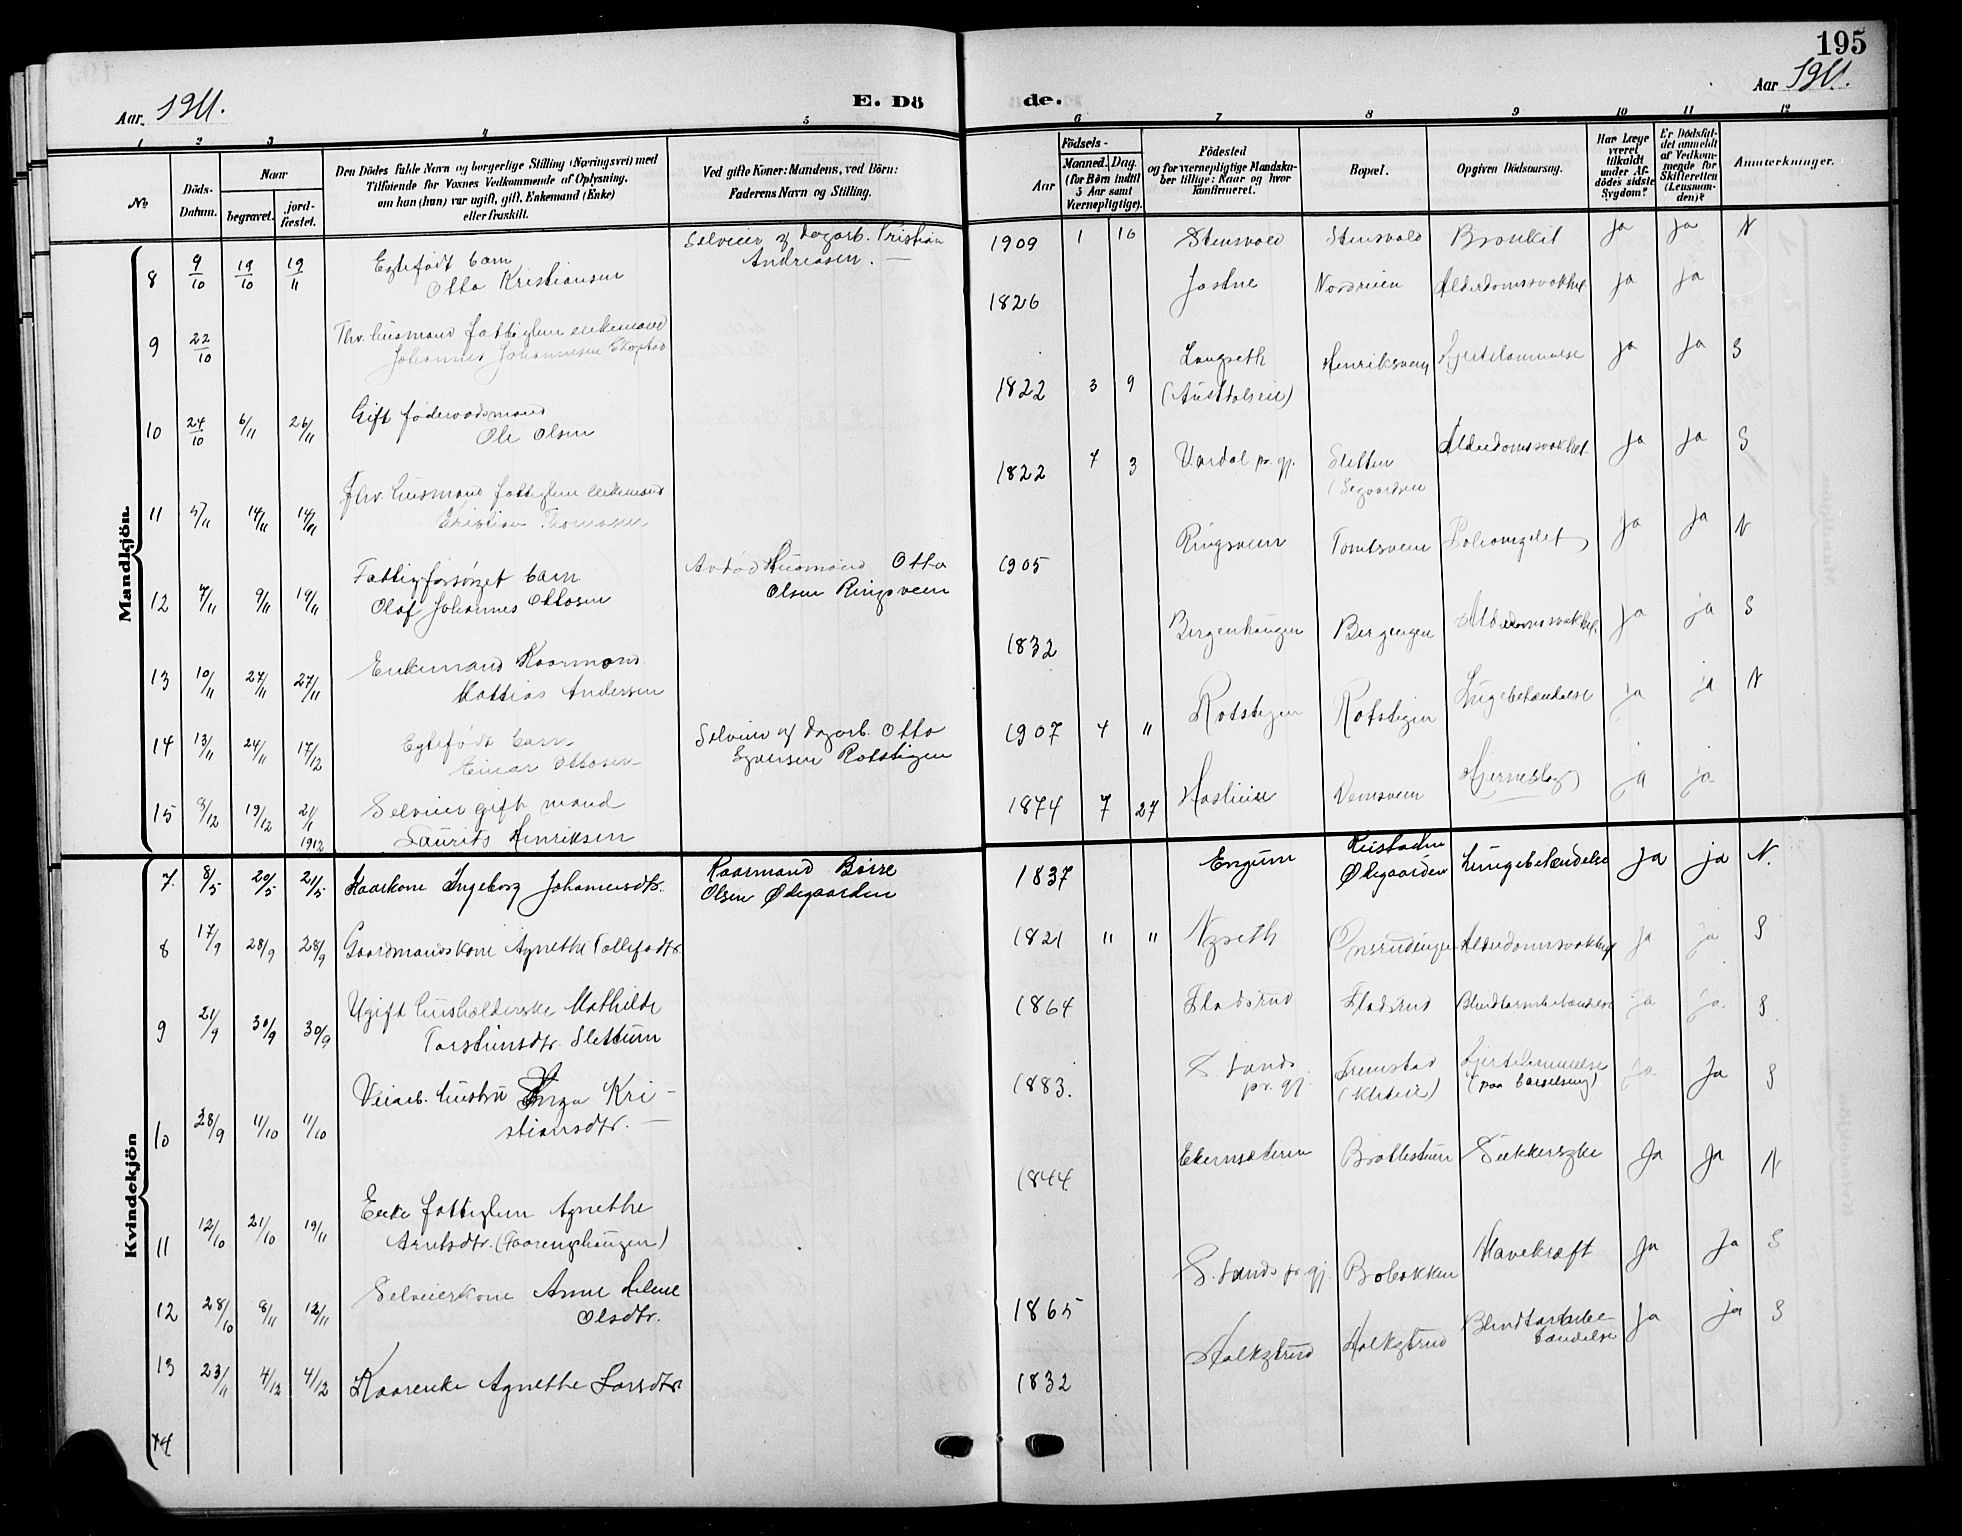 195
Aar. 1911.
E. Dö
de.
Aar 1911.
1 2 3 4 5 6 7 8 9 10 11 12
No
Döds-Datum.
Naar
begravet.
jord-fæstet.
Den Dödes fulde Navn og borgerlige Stilling (Næringsvei) med
Tilföiende for Voxnes Vedkommende af Oplysning,
om han (hun) var ugift, gift, Enkemand (Enke)
eller fraskilt.
Ved gifte Koner: Mandens, ved Börn:
Faderens Navn og Stilling.
Födsels-
Aar
Maaned. Dag.
(for Børn indtil
5 Aar samt
Værnepligtige).
Födested
og for værnepligtige Mandska-
ber tillige: Naar og hvor
konfirmeret.
Bopæl.
Opgiven Dödsaarsag.
Har Læge
været
tilkaldt
under Af-
dödes sidste
Sygdom?
Er Dödsfal-
det anmeldt
af Vedkom-
mende for
Skifteretten
(Lensman-
den)?
Anmærkninger.
Mandkjön.
8 9/10 19/10 19/11 Egtefødt barn
Otto Kristiansen
Selveier og dagarb. Kristian
Andreasen.
1909 1 16 Stensvold Stensvold Bronkit ja ja N
9 22/10 Fhv. husmand fattiglem enkemand
Johannes Johannesen
1826 Nordveien Alderdomssvakhet ja ja
10 24/10 6/11 26/11 Gift føderaadsmand
Ole Olsen
1822 3 9 Langseth
Henriksveen Hjertelammelse ja ja S
11 5/11 14/11 14/11 Fhv. husmand fattiglem enkemand
Kristian Thomasen
1822 7 3 Vardal pr. gj. Sletten
Alderdomssvakhet ja ja S
12 7/11 9/11 19/11 Fattigforsørget barn
Olaf Johannes Ottosen
Avdød Husmand Otto
Olsen Ringsveen
1905 Ringsveen Tomtsveen ja ja N
13 10/11 27/11 27/11 Enkemand Kaarmand
Mattias Andersen
1832 Bergenhaugen Bergengen Alderdomssvakhet. ja ja S
14 13/11 24/11 17/12 Egtefødt barn
Einar Ottosen
Selveier og dagarb. Otto
Rotstigen
1907 4 " Rotstigen Rotstigen Lungebetændelse ja ja N
15 3/12 19/12 2/1 1912 Selveier gift mand
Laurits Henriksen
1874 7 27 Hjerneslag ja ja
Kvindekjön
7. 8/5 20/5 21/5 Kaarkone Ingeborg Johannesdtr.
Kaarmand Børre
Olsen Ødegaarden
1837 Engum
Ødegaarden Lungebetændelse ja ja N.
8 17/9 28/9 28/9 Gaardmandskone Agnethe Tollefsdtr.
1821 " " Nyseth Alderdomssvakhet ja ja S
9 21/9 30/9 30/9 Ugift husholderske Mathilde
Torstensdtr. Slettum
1864 Fladsrud Fladsrud Blindtarmbetændelse ja ja S
10 28/9 11/10 11/10 Veiarb. hustru Inga Kri-
stiansdtr.
1883. S. Lands
pr. gj. Hjertelammelse
(paa barselseng) ja ja S
11 12/10 21/10 19/11 Enke fattiglem Agnethe
Arntsdtr. (Taarengshaugen)
1844 Brottestuen Sukkersyke ja ja N
12 28/10 8/11 12/11 Selveierkone Anne Helene
Olsdtr.
1865 S. Lands pr. gj. Bobakken Mavekræft ja ja S
13 23/11 4/12 4/12 Kaarenke Agnethe Larsdtr.
1832 Halkstrud Halkstrud Blindtarmbe-
tændelse ja ja S
14